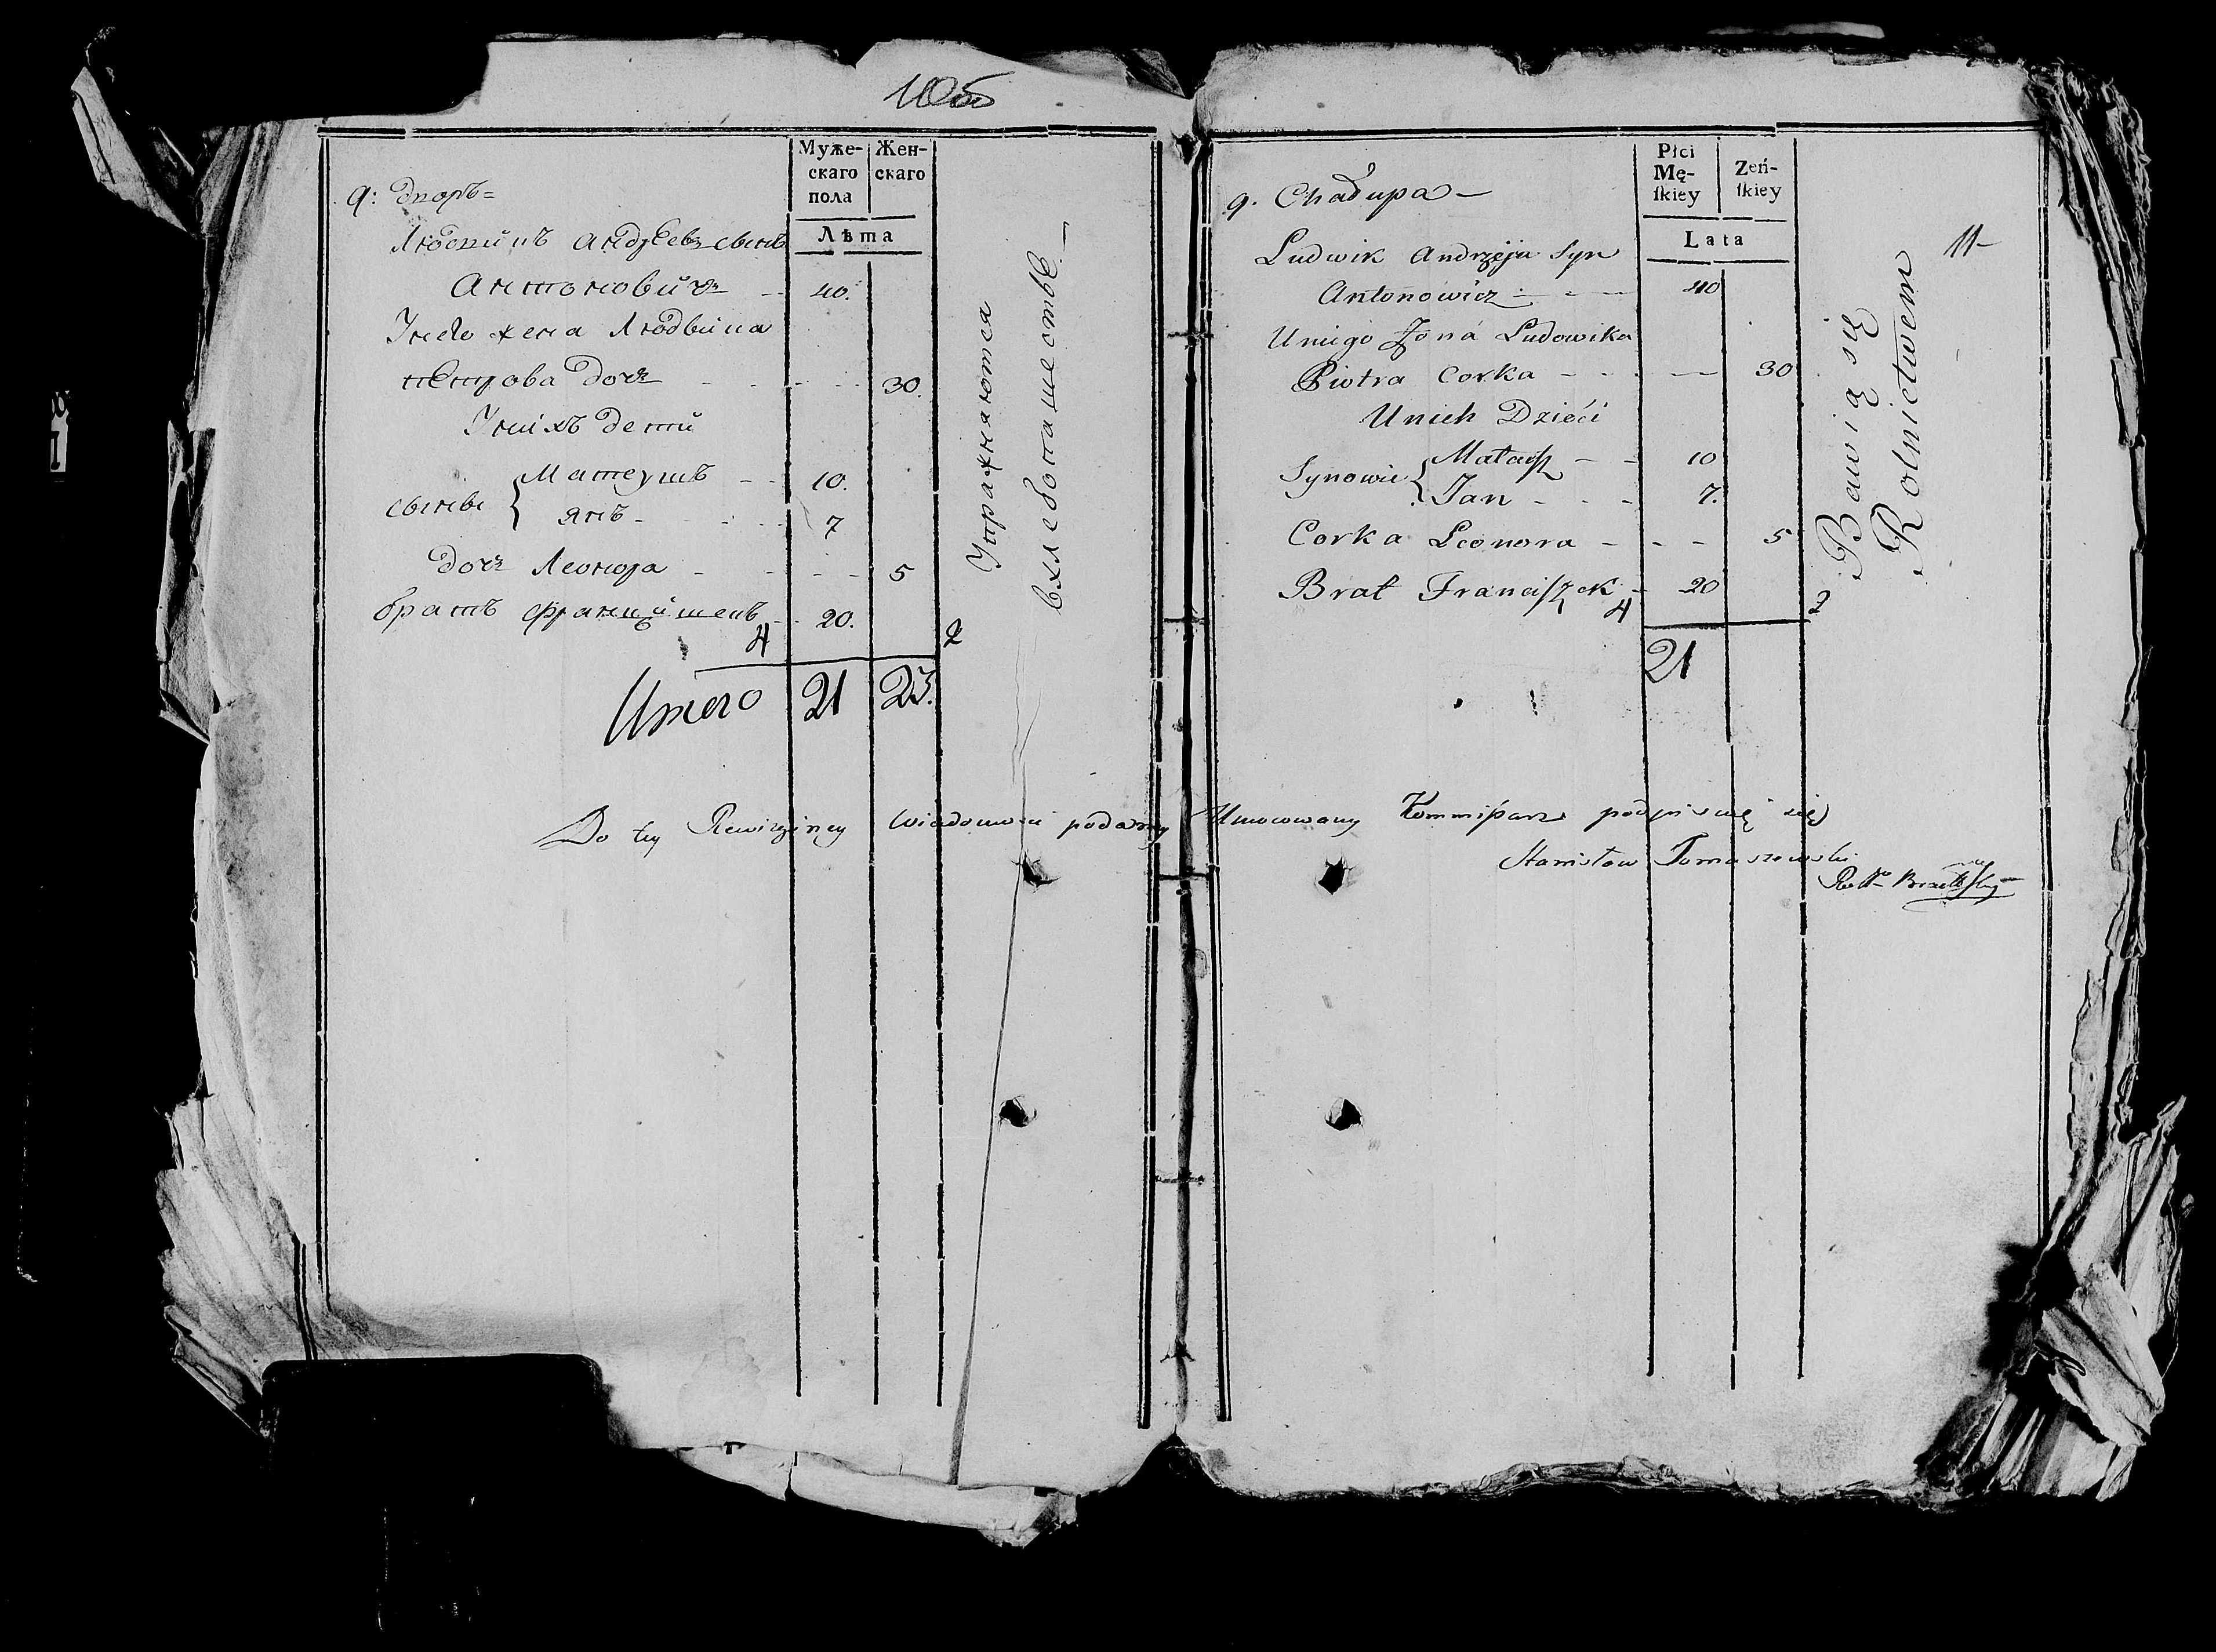 10об
Муже-
скаго
пола
Жен-
скаго
Лѣта
9: дворъ =
Людвикъ Андреевъ сынъ
Антоновичъ - 40.
Унего жена Людвика
петрова дочь - - - 30.
Унихъ дети
сыновье { Матеушъ - - 10.
Янъ - - - 7
дочь Леонора - - - - 5
братъ Францишекъ - 20.
4 2
Итого 21 23.
Упражняются
вхлебопашестве. —
11-
Płci
Mę-
ſkiey
Zeń-
ſkiey
Lata
9. Chałupa —
Ludwik Andrzeja Syn
Antonowicz - - - 40
Uniego Zona Ludowika
Piotra Corka - - - - 30
Unich Dzieci
Synowie { Mateusz - - 10
Jan - - - 7.
Corka Leonora - - - 5
Brat Franciſzek - 20
4 2
21
Bawią się
Rolnictwem
Do tey Rewizyiney Wiadomosci podaney Umocowany Kommiſsarz podpisuię się
Stanisław Tomaszewski